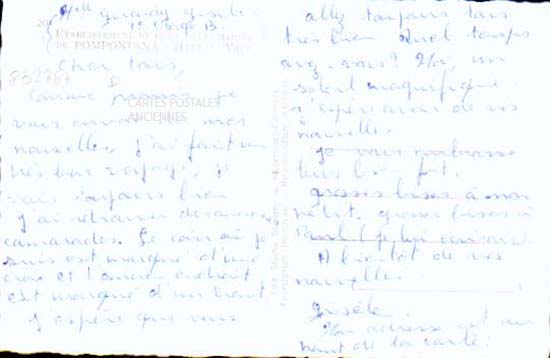 Mlle Guardy Gisèle
ETABLISSEMENT
DE POMPONIANA
802767
CARTES POSTALES
ANCIENNES
Cher tous,
Comme promis je
vous envoie mes
nouvelles, j'ai fait un
très bon voyage, je
vais toujours bien
J'ai retrouvé des anciens
camarades. Le coin où je
suis est marqué d'une
croix et l'ancien endroit
est marqué d'un trait
J'espère que vous
allez toujours tous
très bien Quel temps
avez-vous? Ici, un
soleil magnifique.
J'espère avoir de vos
nouvelles
je vous embrasse
tous bien fort.
grosses bises à mon
grosses bises à
Paul
A bientôt de vos
nouvelles
Gisèle.
Mon adresse est au
haut de la carte.